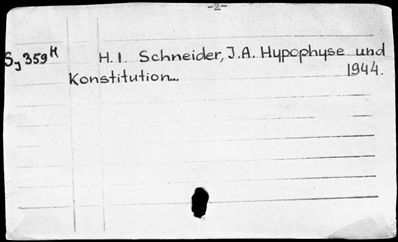 -2-
Sy 359K H.1. Schneider, J.A. Hypophyse und
Konstitution... 1944.